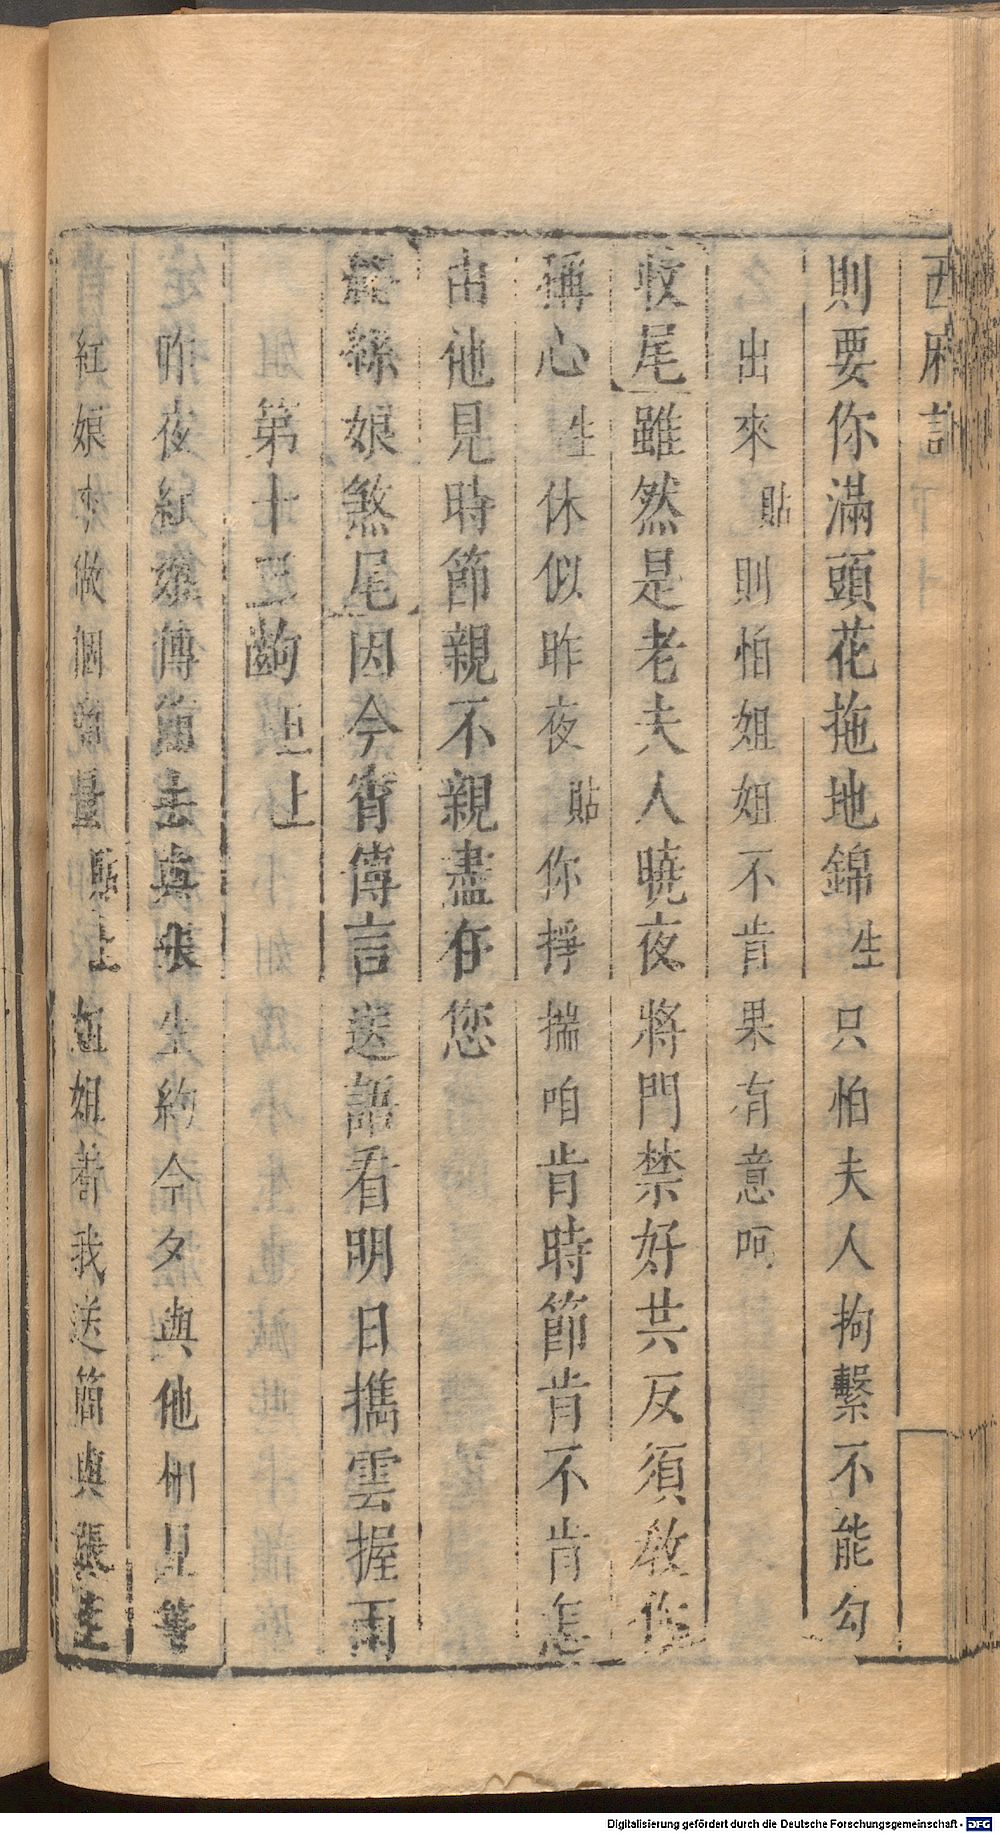 西廂記
則要你滿頭花拖地錦生只怕夫人拘繫不能勾
出來貼則怕姐姐不肯果有意呵
收尾雖然是老夫人曉夜將門禁好共反須教你
稱心生休似昨夜貼你掙揣咱肯時節肯不肯怎
由他見時節親不親盡在您
絡絲娘煞尾因今宵傳言送語看明日攜雲握雨
第十五齣旦上
昨夜紅娘傳簡去與張生約今夕與他相見等
紅娘來做個商量貼上姐姐着我送簡與張生
Digitalisierung gefördert durch die Deutsche Forschungsgemeinschaft - DFG